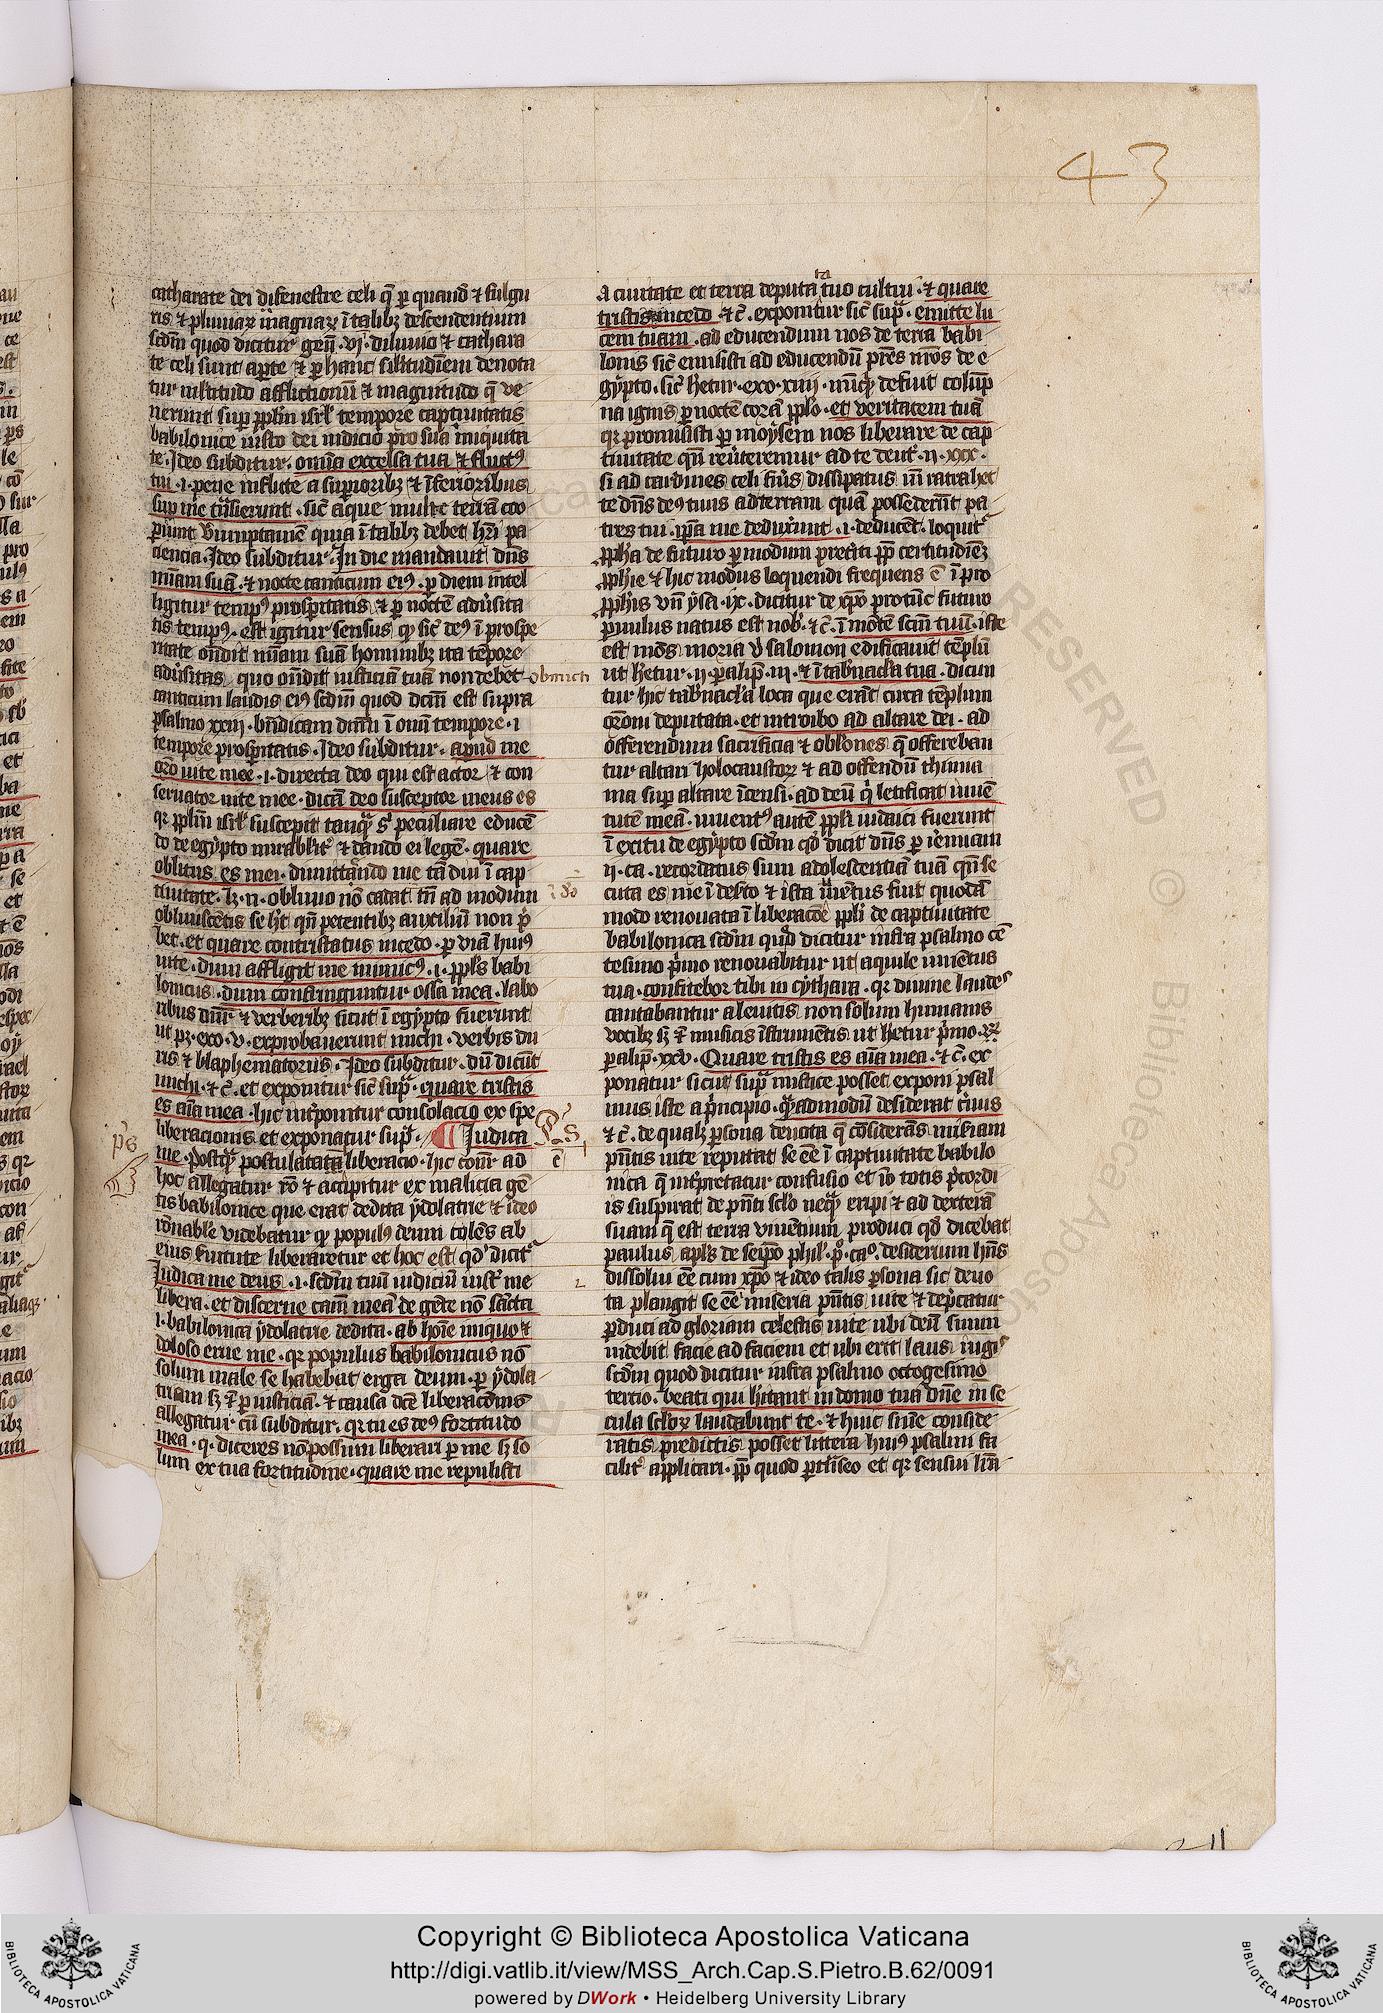 43
catharate dei di fenestre celi q̄ ꝑ quand̄ ⁊ fulgu
ris ⁊ pluuiaꝝ magnaꝝ ī talibꝫ descendentium
scd̄m quod dicitur gen̄ .vij. diluuio ⁊ cathara
te celi sunt apte ⁊ ꝑ hanc silitudinem denota
tur multitudo afflictionū ⁊ magnitudo q̄ ve
nerunt sup ppl̄m isrl̄ tempore captiuitatis
babilonice iusto dei iudicio pro sua iniquita
te . Ideo subditur . omīa excelsa tua ⁊ fluctꝰ
tui .i. pene inflicte a superioribꝫ ⁊ īferioribus
sup me trāsierunt . sic̄ aque multe terrā coo
piunt Verumptamē quia ī talibꝫ debet hr̄i pa
ciencia . Ideo subditur . In die mandauit dn̄s
miam suā . ⁊ nocte canticum eiꝰ . ꝑ diem intel
ligitur tempꝰ prosꝑitatis ⁊ ꝑ noctē aduersita
tis tempꝰ . est igitur sensus ꝙ sic̄ deꝰ ī prospe
ritate ondit miam suā hominibꝫ ita tēpore
aduersitatis quo ondit iusticiā tuā non debet obmicti
canticum laudis eiꝰ scd̄m quod dcm̄ est supra
psalmo xxxiij . bn̄dicam dnm̄ ī omī tempore . i
tempore prosꝑitatis . Ideo subditur . apud me
orō uite mee .i. directa deo qui est actor ⁊ con
seruator uite mee . dicā deo susceptor meus es
qr ppl̄m isrl̄ suscepit tanqꝫ s̄ peculiare educē
do de egypto mirabilit̄ ⁊ dando ei legē . quare
oblitus es mei . dimittendo me tā diu ī cap
tiuitate . lꝫ .n. obliuio nō cadat tn̄ ad modum ī do
obliuiscētis se hꝫ qn̄ petentibꝫ auxiliū non p̄
bet . et quare contristatus incedo . ꝑ viā huiꝰ
uite . dum affligit me inimicꝰ .i. ppls̄ babi
lonicus . dum confringuntur ossa mea . labo
ribus duris ⁊ verberibꝫ sicut ī egypto fuerunt
ut pꝫ . exo . v . exprobauerunt michi . verbis du
ris ⁊ blasphematoriis . Ideo subditur . dū dicūt
michi . ⁊ c̄ . et exponitur sic̄ sup̄ . quare tristis
es aīa mea . hic īterponitur consolacio ex spe
liberacionis et exponatur sup̄ . ¶ Iudica ps
me . postqꝫ postulata liberacio . hic conr̄ ad
hoc allegatur rō ⁊ accipitur ex malicia gē
tis babilonice que erat dedita ydolatrie ⁊ ideo
rōnabile videbatur ꝙ populꝰ deum colēs ab
eius seruitute liberaretur et hoc est qd̄ dicit̄
Iudica me deus . i . scd̄m tuū iudiciū iust̄ me
libera . et discerne cam̄ meā de gēte nō sancta
i . babilonica ydolatrie dedita . ab hoīe iniquo ⁊
doloso erue me . qr populus babilonicus nō
solum male se habebat erga deum . ꝑ ydola
triam sꝫ ⁊ ꝑ iusticiā . ⁊ causa dc̄e liberacōnis
allegatur cū subditur . qr tu es deꝰ fortitudo
mea . q . diceres nō possum liberari ꝑ me sꝫ so
lum ex tua fortitudine . quare me repulisti
ps
a ciuitate et terra deputata tuo cultui . ⁊ quare
tristis incedo . ⁊ c̄ . exponitur sic̄ sup̄ . emitte lu
cem tuam . ad educendum nos de terra babi
lonis sic̄ emisisti ad educendū pr̄es nr̄os de e
gypto . sic̄ hetur . exo . xiiij . nūqꝫ defuit colūp
na ignis ꝑ noctē corā pplo . et veritatem tuā
qr promisisti ꝑ moysem nos liberare de cap
tiuitate qn̄ reuerteremur ad te deut̄ . n . xxx .
si ad cardines celi fueris dissipatus īn retrahet
te dn̄s deꝰ tuus ad terram quā possederūt pa
tres tui . ipa me deduxerunt .i. deducēt . loquit̄
ppha de futuro ꝑ modum preteriti ꝓp certitudinē
pphie ⁊ hic modus loquendi frequens ē ī pro
pphis vn̄ ysa . ix . dicitur de xpo pro tūc futuro
paruulus natus est nob̄ . ⁊ c̄ . ī mōte scm̄ tuū . iste
est mōs moria ubi salomon edificauit tēplū
ut hetur . ij . ꝑalip̄ . iij . ⁊ ī tab̄nacla tua . dicun
tur hic tab̄nacla loca que erāt circa tēplum
orōni deputata . et introibo ad altare dei . ad
offerendum sacrificia ⁊ oblōnes q̄ offereban
tur altari holocaustoꝝ ⁊ ad offendū thimia
ma sup altare īcensi . ad deū q̄ letificat iuuē
tutē meā . iuuentꝰ autē ppli iudaici fuerunt
ī exitu de egypto scd̄m qd̄ dicit dn̄s ꝑ ieremiam
ij . ca . recordatus sum adolescentiā tuā qn̄ se
cuta es me ī desto ⁊ ista iuuētus fuit quodā
modo renouata ī liberacōe ppli de captiuitate
babilonica scd̄m quod dicitur infra psalmo cē
tesimo p̄mo renouabitur ut aquile iuuētus
tua . confitebor tibi in cythara . qr diuine laudeˢ
cantabantur a leuitis non solum humanis
vocibꝫ sꝫ ⁊ musicis īstrumētis ut hetur p̄mo
ꝑalip̄ . xxv . Quare tristis es aīa mea . ⁊ c̄ . ex
ponatur sicut sup̄ mistice posset exponi psal
mus iste a p̄ncipio . quēadmodū desiderat c̄uus
⁊ c̄ . de qualꝫ ꝑsona deuota q̄ cōsiderās miseriam
pn̄tis uite reputat se eē ī captiuitate babilo
nica q̄ īterpretatur confusio et iō totis p̄cordi
is suspirat de pn̄ti sclo nequā eripi ⁊ ad dexterā
suam q̄ est terra viuētium produci qd̄ dicebat
paulus apls̄ de seipo phil̄ . p̄ . ca° . desiderium hn̄s
dissolui eē cum xpo ⁊ ideo talis ꝑsona sic deuo
ta plangit se eē miseria pn̄tis uite ⁊ dep̄catur
ꝑduci ad gloriam celestis uite ubi deū suum
uidebit facie ad faciem et ubi erit laus iugiˢ
scd̄m quod dicitur infra psalmo octogesimo
tercio . beati qui hītant in domo tua dn̄e in se
cula scloꝝ laudabunt te . ⁊ huic siue conside
ratis predictis posset littera huiꝰ psalmi fa
cilit̄ applicari . ꝓp quod ꝑtranseo et qr sensui līa
Copyright © Biblioteca Apostolica Vaticana
http://digi.vatlib.it/view/MSS_Arch.Cap.S.Pietro.B.62/0091
powered by DWork • Heidelberg University Library